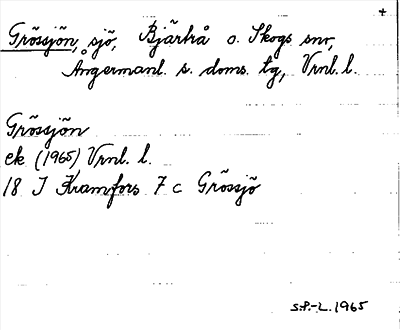 +
Grössjön, sjö, Bjärtrå o. Skogs snr,
Ångermanl. s. doms. tg, Vrnl. l.
Grössjön
ek (1965) Vrnl. l.
18 J Kramfors 7 c Grössjö
S.P.-L. 1965